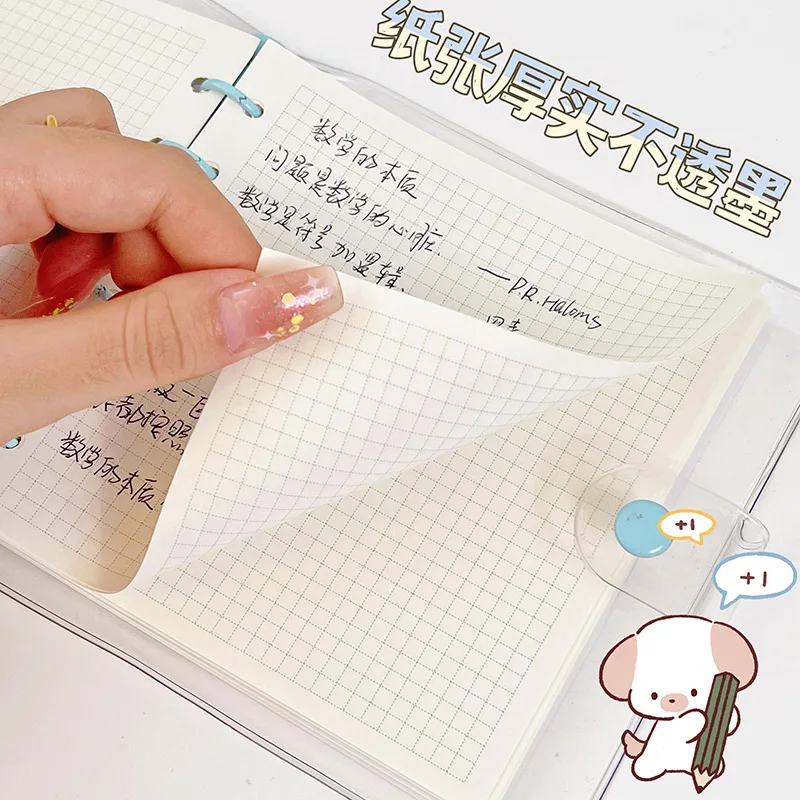 纸张厚实不透墨
数学的本质
问题是数学的心脏.
数学是符号加逻辑.
—P.R.Haloms
数学的本质
+1
+1